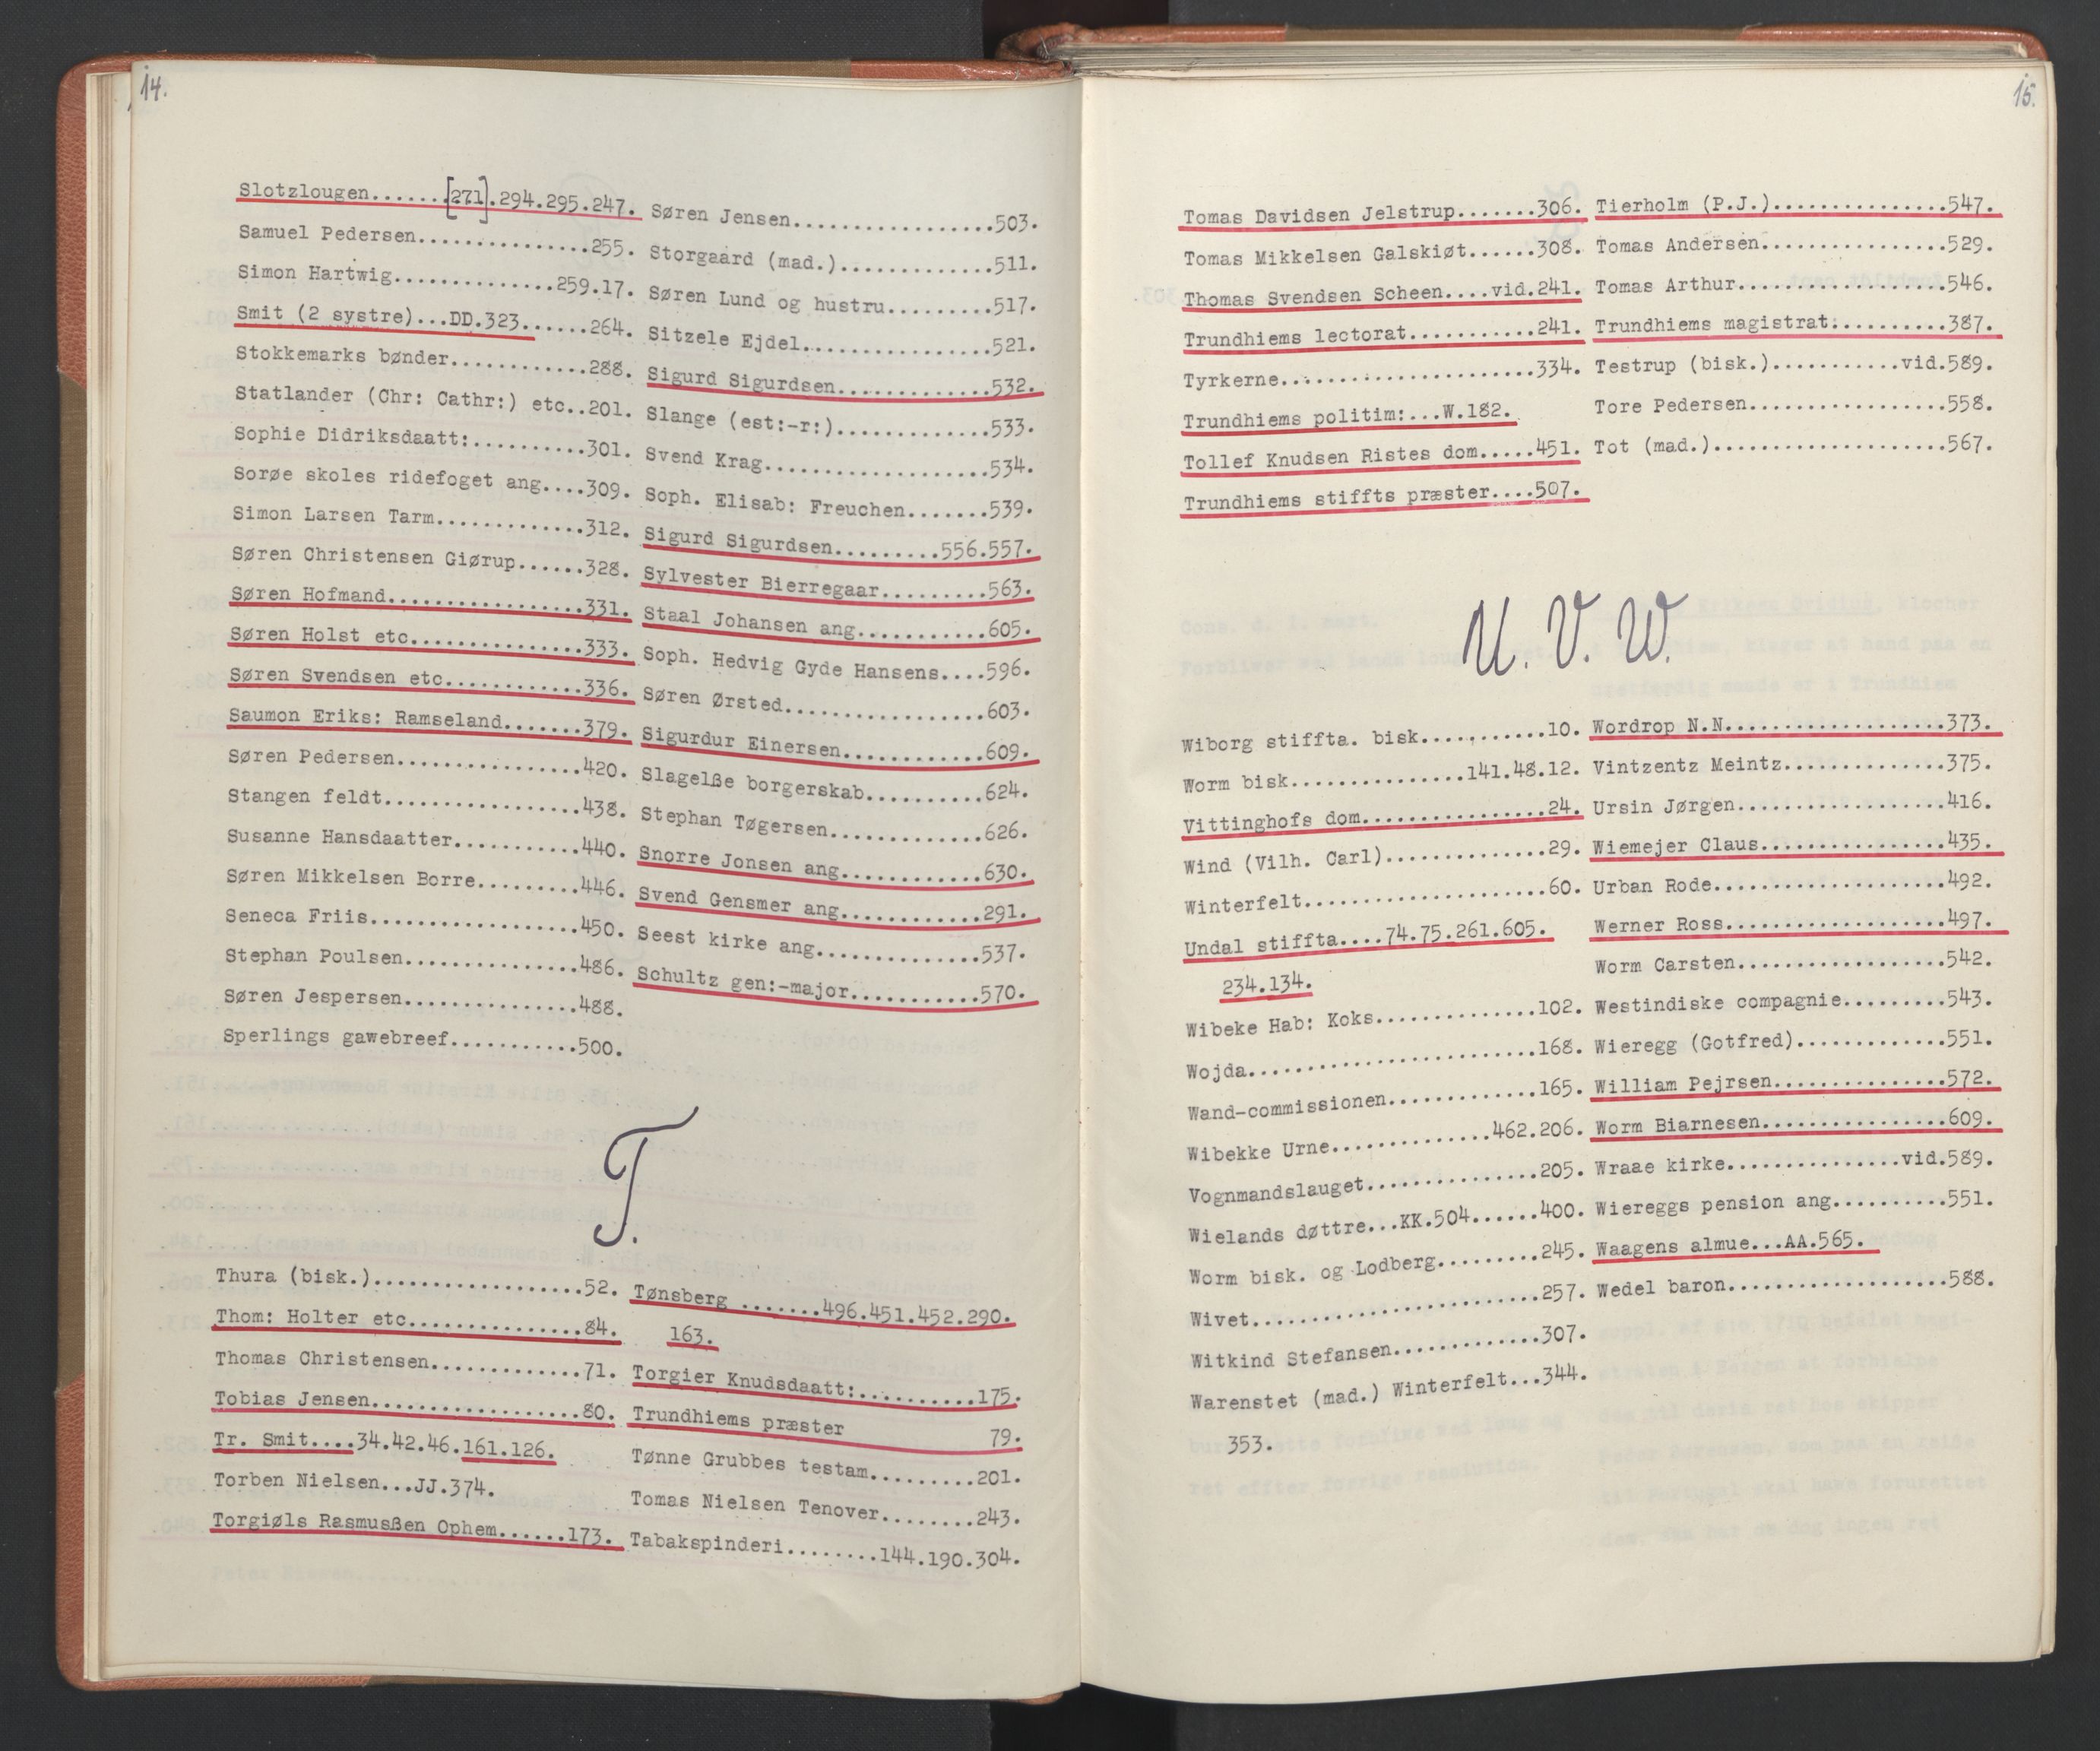 14.
Slotzlougen.......[271].294.295.247.
Samuel Pedersen...............255.
Simon Hartwig..............259.17.
Smit (2 systre)...DD.323......264.
Stokkemarks bønder............288.
Statlander (Chr: Cathr:) etc..201.
Sophie Didriksdaatt:..........301.
Sorøe skoles ridefoget ang....309.
Simon Larsen Tarm.............312.
Søren Christensen Giørup......328.
Søren Hofmand.................331.
Søren Holst etc...............333.
Søren Svendsen etc............336.
Saumon Eriks: Ramseland.......379.
Søren Pedersen................420.
Stangen feldt.................438.
Susanne Hansdaatter...........440.
Søren Mikkelsen Borre.........446.
Seneca Friis..................450.
Stephan Poulsen...............486.
Søren Jespersen...............488.
Sperlings gawebreef...........500.
Søren Jensen..................503.
Storgaard (mad.)..............511.
Søren Lund og hustru..........517.
Sitzele Ejdel.................521.
Sigurd Sigurdsen..............532.
Slange (est:-r:)..............533.
Svend Krag....................534.
Soph. Elisab: Freuchen........539.
Sigurd Sigurdsen..........556.557.
Sylvester Bierregaar..........563.
Staal Johansen ang............605.
Soph. Hedvig Gyde Hansens....596.
Søren Ørsted..................603.
Sigurdur Einersen.............609.
Slagelße borgerskab...........624.
Stephan Tøgersen..............626.
Snorre Jonsen ang.............630.
Svend Gensmer ang.............291.
Seest kirke ang...............537.
Schultz gen:-major............570.
T.
Thura (bisk.)..................52.
Thom: Holter etc...............84.
Thomas Christensen.............71.
Tobias Jensen..................80.
Tr. Smit....34.42.46.161.126.
Torben Nielsen...JJ.374.
Torgiøls Rasmusßen Ophem......173.
Tønsberg .......496.451.452.290.
163.
Torgier Knudsdaatt:..........175.
Trundhiems præster 79.
Tønne Grubbes testam.........201.
Tomas Nielsen Tenover........243.
Tabakspinderi........144.190.304.
15.
Tomas Davidsen Jelstrup.......306.
Tomas Mikkelsen Galskiøt......308.
Thomas Svendsen Scheen....vid.241.
Trundhiems lectorat...........241.
Tyrkerne......................334.
Trundhiems politim:...W.182.
Tollef Knudsen Ristes dom.....451.
Trundhiems stiffts præster....507.
Tierholm (P.J.)...............547.
Tomas Andersen................529.
Tomas Arthur..................546.
Trundhiems magistrat..........387.
Testrup (bisk.)...........vid.589.
Tore Pedersen.................558.
Tot (mad.)....................567.
U. V. W.
Wiborg stiffta. bisk...........10.
Worm bisk...............141.48.12.
Vittinghofs dom................24.
Wind (Vilh. Carl)..............29.
Winterfelt.....................60.
Undal stiffta....74.75.261.605.
234.134.
Wibeke Hab: Koks..............102.
Wojda.........................168.
Wand-commissionen.............165.
Wibekke Urne..............462.206.
Vognmandslauget...............205.
Wielands døttre...KK.504......400.
Worm bisk. og Lodberg.........245.
Wivet.........................257.
Witkind Stefansen.............307.
Warenstet (mad.) Winterfelt...344.
353.
Wordrop N.N...................373.
Vintzentz Meintz..............375.
Ursin Jørgen..................416.
Wiemejer Claus................435.
Urban Rode....................492.
Werner Ross...................497.
Worm Carsten..................542.
Westindiske compagnie.........543.
Wieregg (Gotfred).............551.
William Pejrsen...............572.
Worm Biarnesen................609.
Wraae kirke...............vid.589.
Wiereggs pension ang..........551.
Waagens almue...AA.565.
Wedel baron...................588.